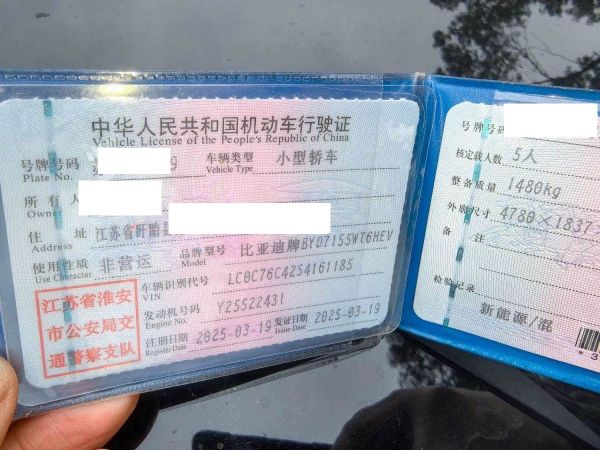 中华人民共和国机动车行驶证
Vehicle License of the People's Republic of China
号牌号码 9 车辆类型 小型轿车
Plate No. Vehicle Type
所有人
Owner
住址 江苏省盱眙县
Address
使用性质 非营运 品牌型号 比亚迪牌BYD7155WT6HEV
Use Character Model
江苏省淮安
市公安局交
通警察支队
车辆识别代号 LC0C76C42S4161185
VIN
发动机号码 Y25522431
Engine No.
注册日期 2025-03-19 发证日期 2025-03-19
Register Date Issue Date
号牌号码
核定载人数 5人
整备质量 1480kg
外廓尺寸 4780×1837
备注
检验记录
新能源/混
*3